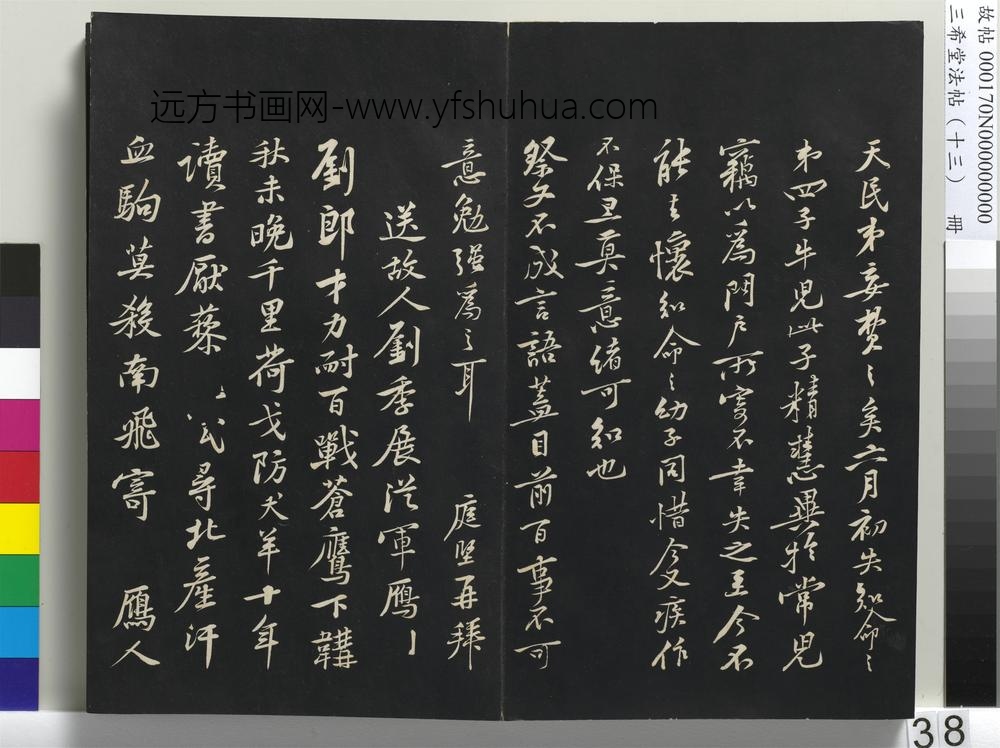 故帖 000170N000000000
三希堂法帖(十三) 冊
远方书画网-www.yfshuhua.com
天民弟 〻矣六月初失知命〻
弟四子牛兒此子精慧異於常兒
竊以爲門戶所寄不幸失之至今不
能忘懷知命〻幼子同惜今又疾作
不保 意緒可知也
祭文不成言語蓋目前百事不可
意勉强爲之耳 庭堅再拜
送故人劉季展從軍鴈
劉郎才力耐百戰蒼鷹下韝
秋未晚千里荷戈防犬羊十年
讀書厭藜 尋北產汗
血駒莫殺南飛寄 鴈人
38